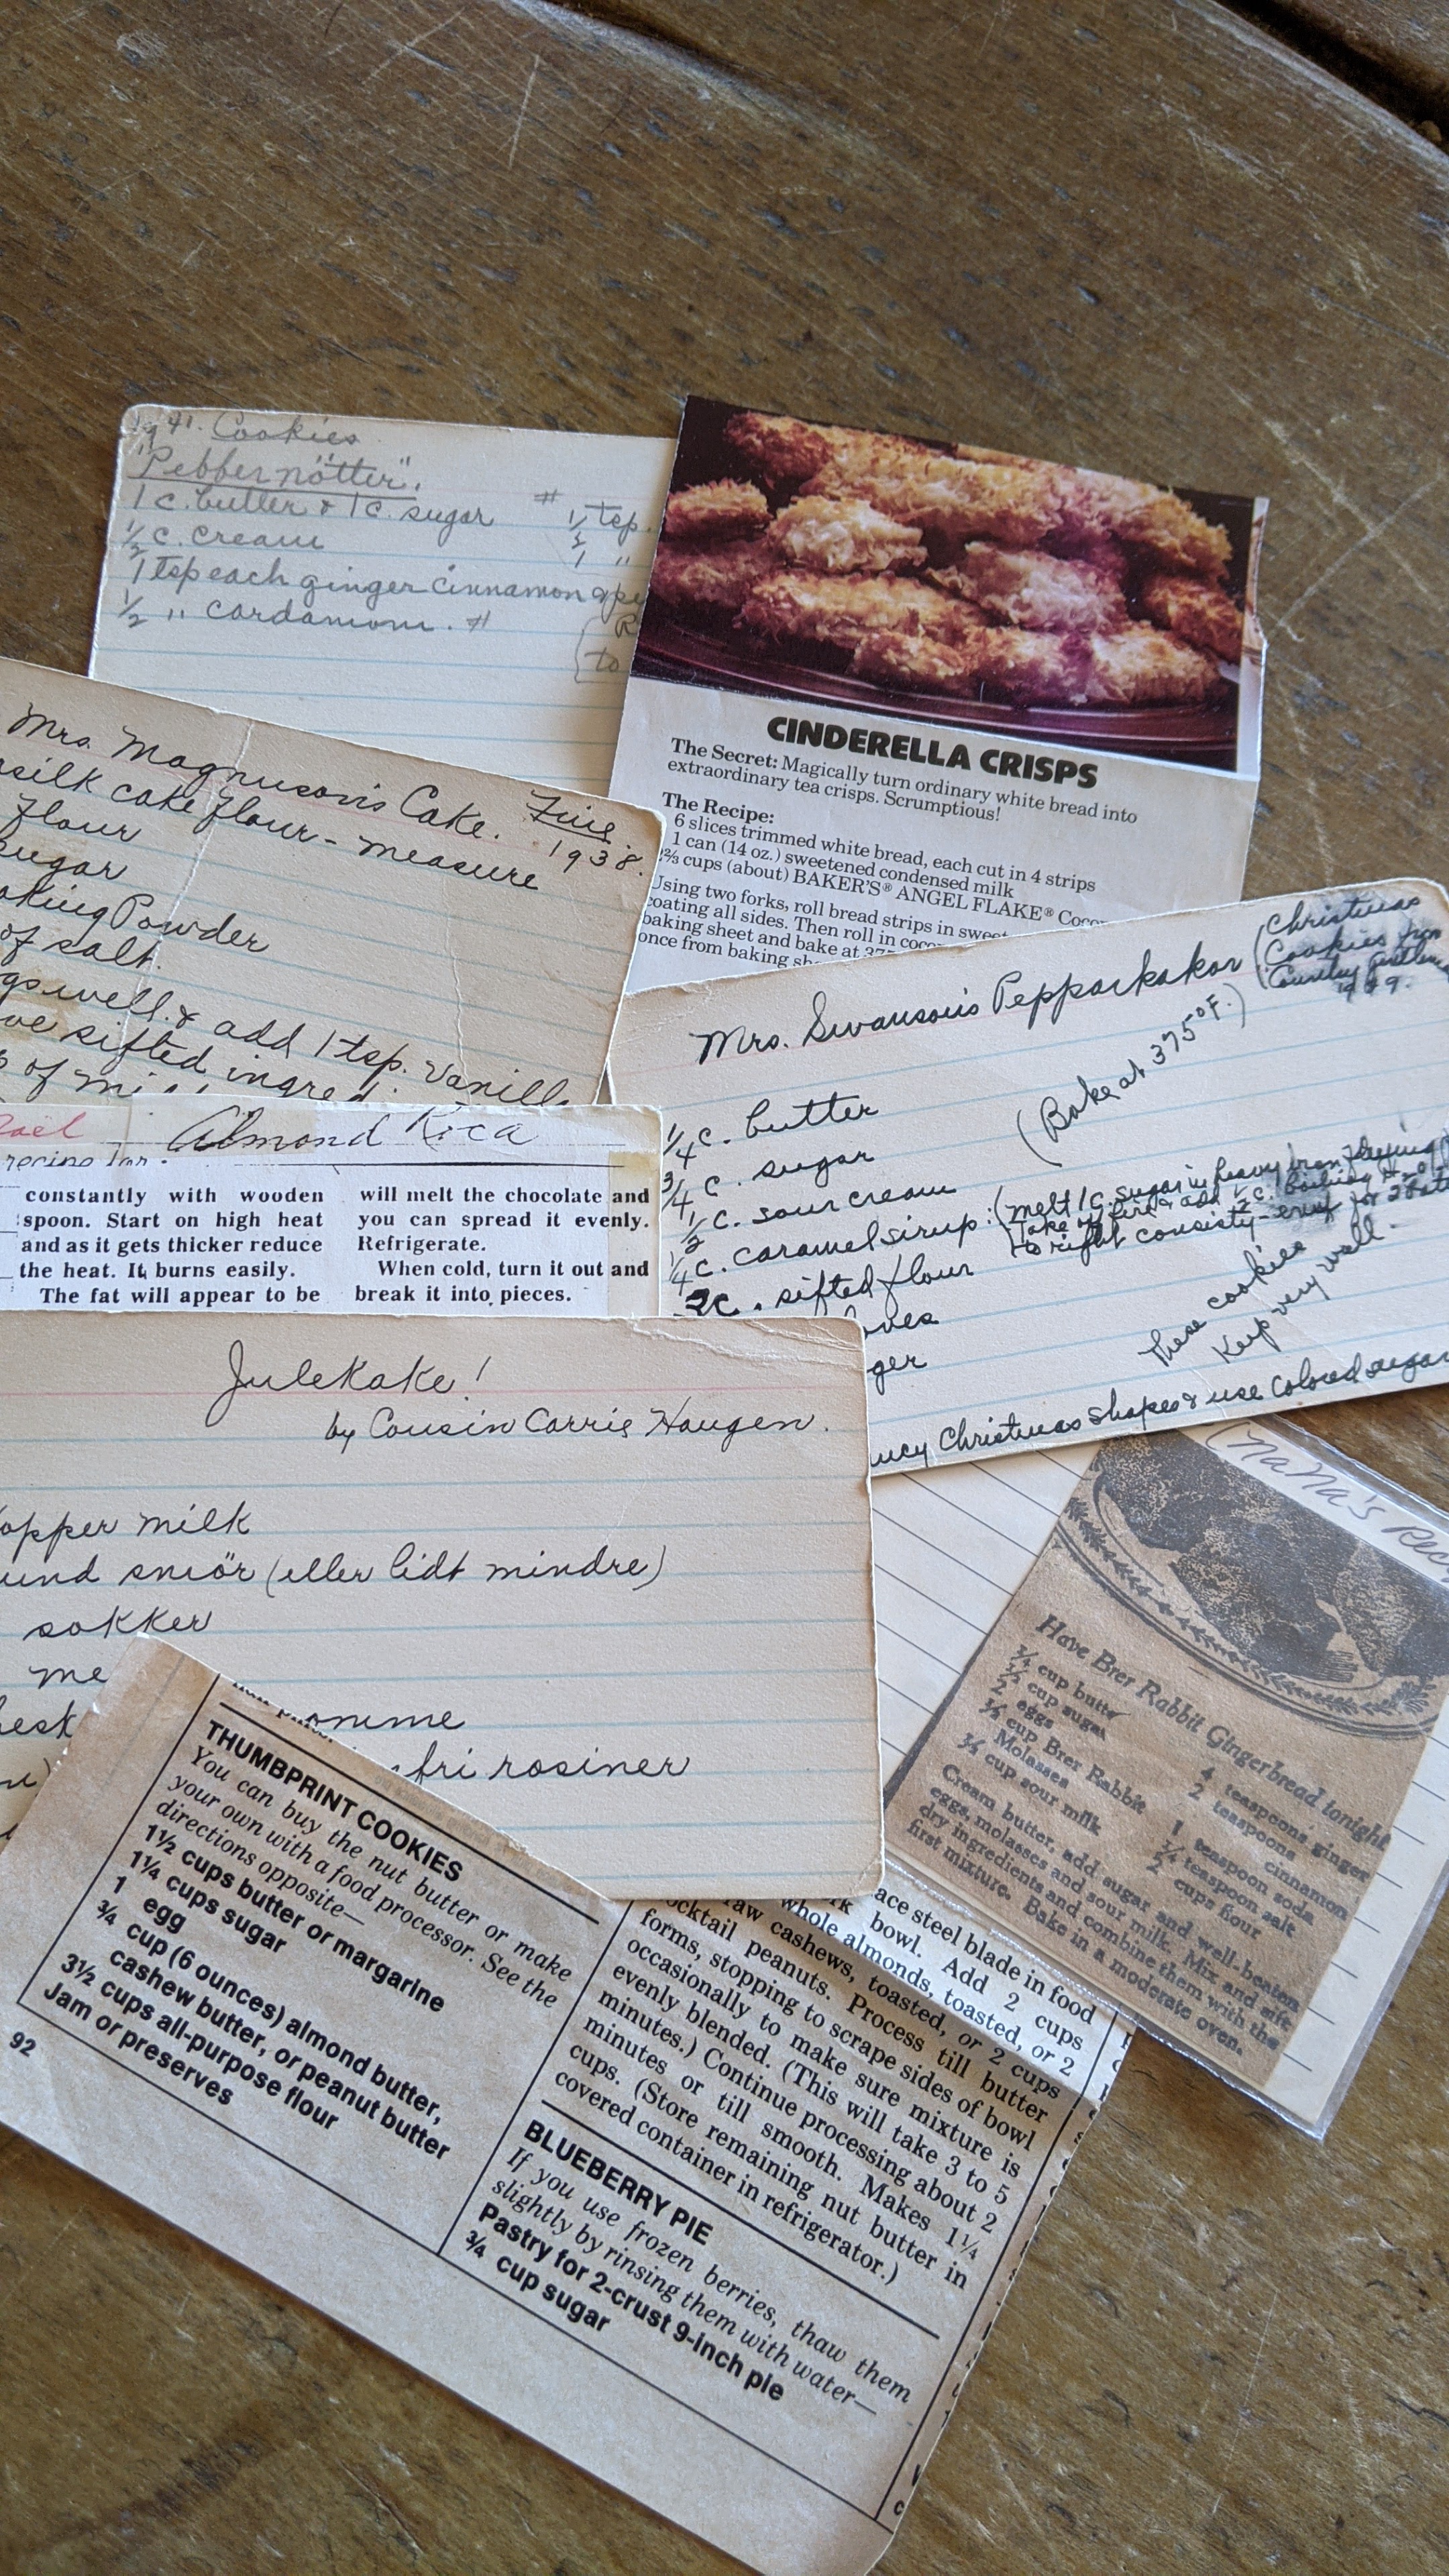 Cookies
"Pebbernötter".
1 c. butter & 1 c. sugar
½ c. cream
1 tsp each ginger cinnamon
½ " cardamom. #
# ½ tsp.
1 "
to
CINDERELLA CRISPS
The Secret: Magically turn ordinary white bread into
extraordinary tea crisps. Scrumptious!
The Recipe:
6 slices trimmed white bread, each cut in 4 strips
1 can (14 oz.) sweetened condensed milk
2⅔ cups (about) BAKER'S® ANGEL FLAKE® Coco
Using two forks, roll bread strips in sweet
coating all sides. Then roll in coco
baking sheet and bake at 375
once from baking sh
Mrs. Magnuson's Cake. Fine.
1938.
silk cake flour - measure
flour
sugar
aking Powder
of salt.
gs well & add 1 tsp. Vanill
ve sifted ingred
of mi
Mrs. Swanson's Pepparkakor
(Christmas
Cookies from
Country Gentleman
1949.
(Bake at 375°F.)
¼ c. butter
¾ c. sugar
½ c. sour cream
¼ c. caramel sirup: (melt 1 c. sugar in heavy iron frying
Take off fire & add ½ c. boiling
to right consisty-
2 c. sifted flour
oves
ger
These cookies
Keep very well.
ncy Christmas shapes & use colored sugar
Almond Roca
recipe for:
constantly with wooden
spoon. Start on high heat
and as it gets thicker reduce
the heat. It burns easily.
The fat will appear to be
will melt the chocolate and
you can spread it evenly.
Refrigerate.
When cold, turn it out and
break it into pieces.
Julekake!
by Cousin Carrie Haugen.
opper milk
und smör (eller lidt mindre)
sokker
me
esk
omme
fri rosiner
(NaNa's Rec
Have Brer Rabbit Gingerbread tonight
¾ cup butter
½ cup sugar
2 eggs
⅓ cup Brer Rabbit
Molasses
⅓ cup sour milk
4 teaspoons ginger
2 teaspoons
cinnamon
1 teaspoon soda
¼ teaspoon salt
2 cups flour
Cream butter, add sugar and well-beaten
eggs, molasses and sour milk. Mix and sift
dry ingredients and combine them with the
first mixture. Bake in a moderate oven.
THUMBPRINT COOKIES
You can buy the nut butter or make
your own with a food processor. See the
directions opposite—
1½ cups butter or margarine
1¼ cups sugar
1 egg
¾ cup (6 ounces) almond butter,
cashew butter, or peanut butter
3½ cups all-purpose flour
Jam or preserves
92
ace steel blade in food
rk bowl. Add 2 cups
whole almonds, toasted, or 2
raw cashews, toasted, or 2 cups
ocktail peanuts. Process till butter
forms, stopping to scrape sides of bowl
occasionally to make sure mixture is
evenly blended. (This will take 3 to 5
minutes.) Continue processing about 2
minutes or till smooth. Makes 1¼
cups. (Store remaining nut butter in
covered container in refrigerator.)
BLUEBERRY PIE
If you use frozen berries, thaw them
slightly by rinsing them with water—
Pastry for 2-crust 9-inch pie
¾ cup sugar